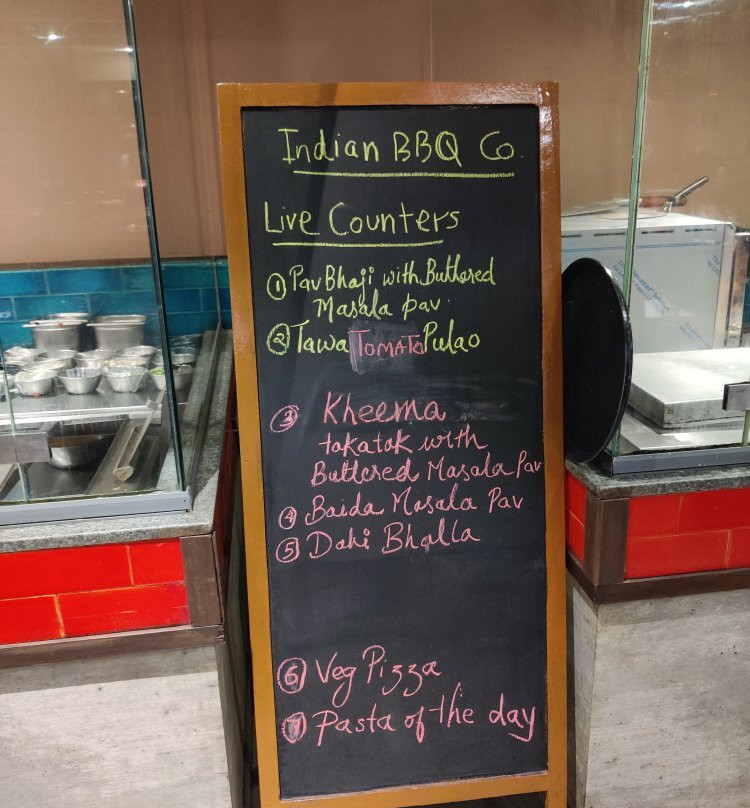 Indian BBQ Co.
Live Counters
① Pav Bhaji with Buttered
Masala pav.
② Tawa TOMATO Pulao
③ Kheema
takatak with
Buttered Masala Pav
④ Baida Masala Pav
⑤ Dahi Bhalla
⑥ Veg Pizza
⑦ Pasta of the day